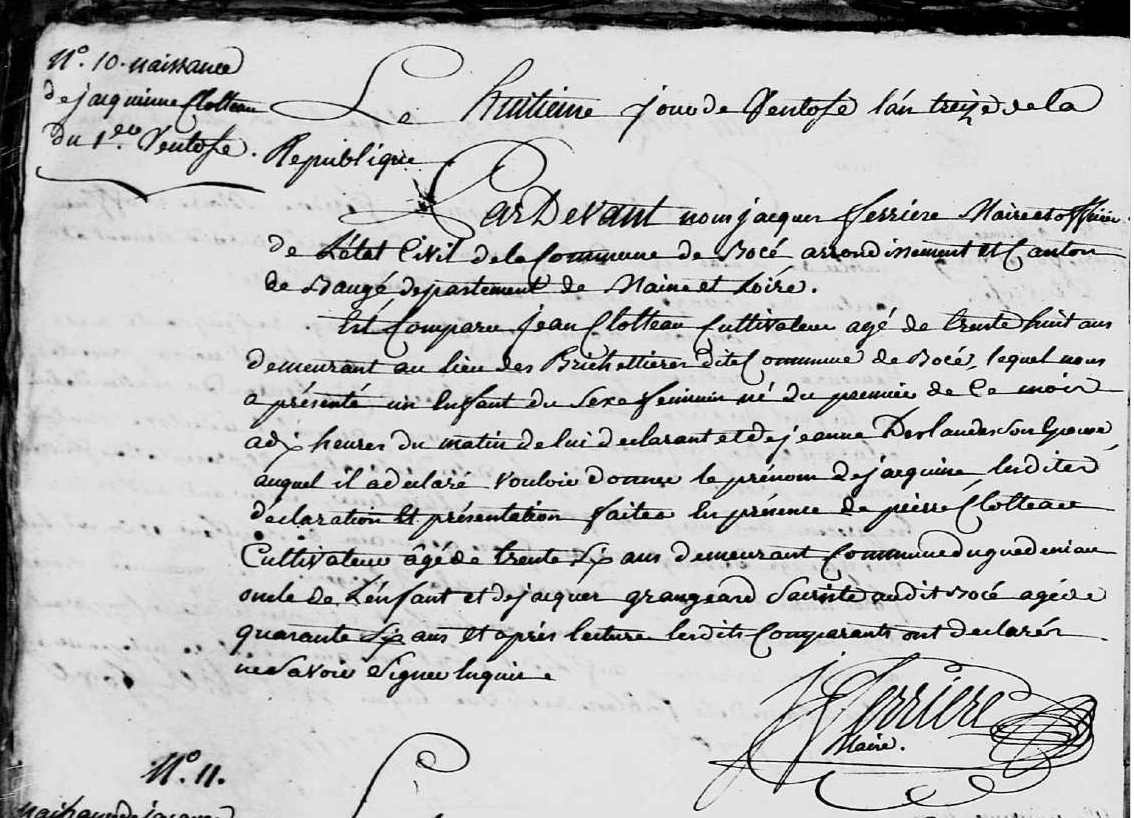 N.º 10. naissance
de jacquinne Clotteau
du 1.er Ventose.
Le huitieme jour de Ventose l'an treize de la
Republique
Par Devant nous jacques Ferriere Maire et officier
de L'état Civil de la Commune de Bocé arrondissement et Canton
de Baugé departement de Maine et Loire.
Est Comparu Jean Clotteau Cultivateur agé de trente huit ans
demeurant au lieu des Brichettieres dite Commune de Bocé, lequel nous
a présenté un Enfant du Sexe feminin né du premier de Ce mois
a dix heures du matin de lui declarant et de jeanne Deslandes son Epouse
auquel il a declaré vouloir donner le prénom de jacquine lesdites
déclaration Et présentation faites En présence de pierre Clotteau
Cultivateur âgé de trente Six ans demeurant Commune du guedeniau
oncle de L'énfant et de jacques grangeard Sacriste audit Bocé agé de
quarante Six ans Et aprés lecture lesdits Comparants ont declarés
ne Savoir Signer Enquis
J Ferriere
Maire.
N.º 11.
naissance de jacques